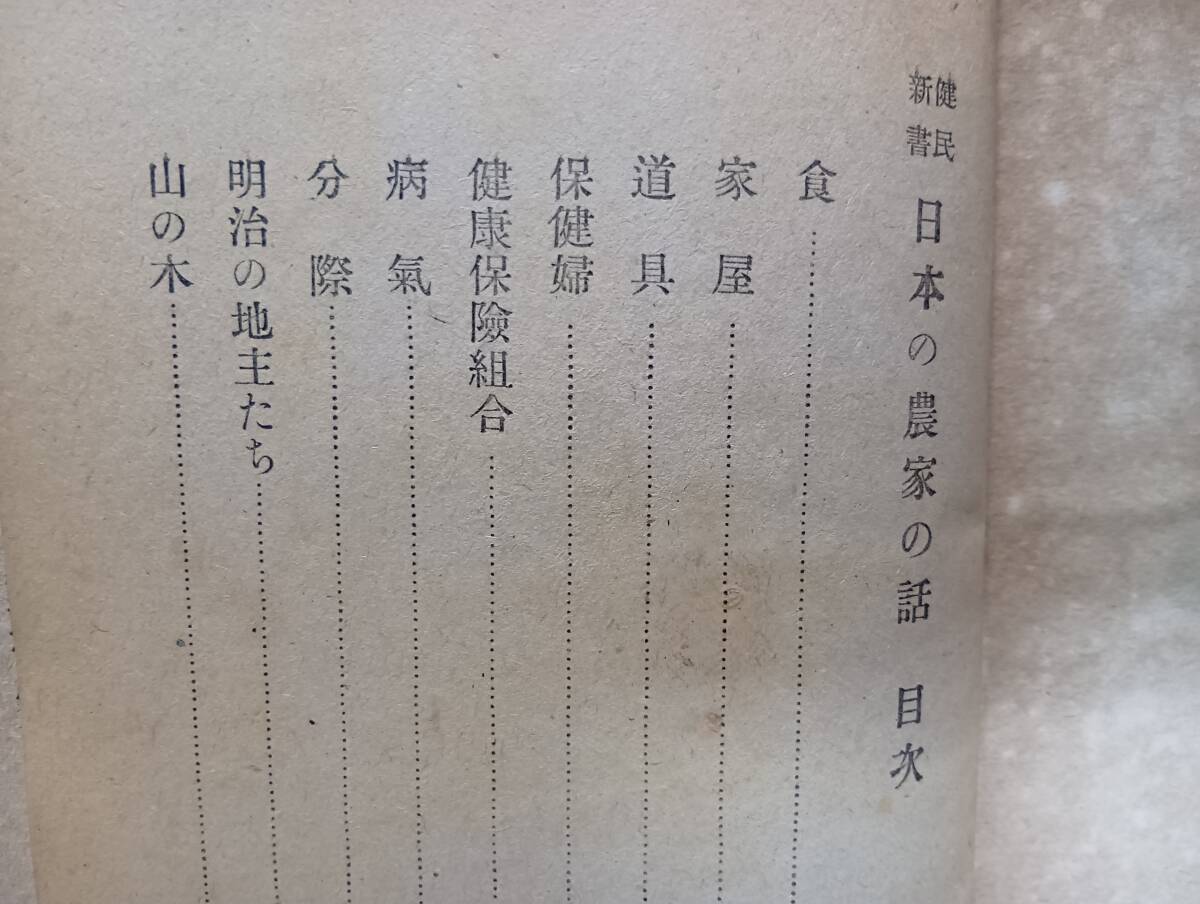 健民新書 日本の農家の話 目次
食
家屋
道具
保健婦
健康保險組合
病氣
分際
明治の地主たち
山の木